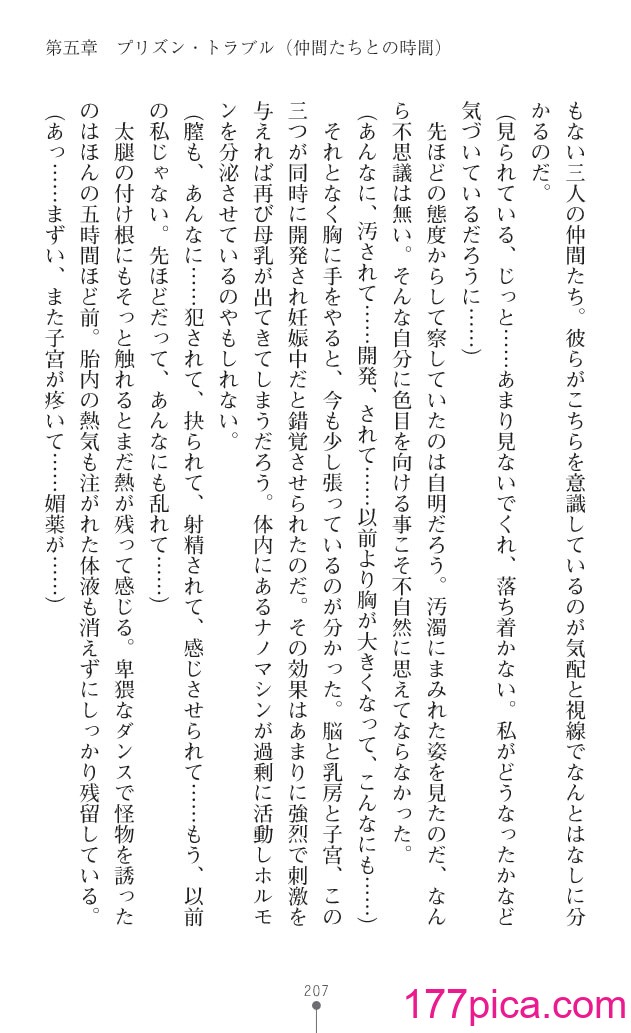 第五章　プリズン・トラブル（仲間たちとの時間）
もない三人の仲間たち。彼らがこちらを意識しているのが気配と視線でなんとはなしに分
かるのだ。
（見られている、じっと……あまり見ないでくれ、落ち着かない。私がどうなったかなど
気づいているだろうに……）
　先ほどの態度からして察していたのは自明だろう。汚濁にまみれた姿を見たのだ、なん
ら不思議は無い。そんな自分に色目を向ける事こそ不自然に思えてならなかった。
（あんなに、汚されて……開発、されて……以前より胸が大きくなって、こんなにも……）
　それとなく胸に手をやると、今も少し張っているのが分かった。脳と乳房と子宮、この
三つが同時に開発され妊娠中だと錯覚させられたのだ。その効果はあまりに強烈で刺激を
与えれば再び母乳が出てきてしまうだろう。体内にあるナノマシンが過剰に活動しホルモ
ンを分泌させているのやもしれない。
（膣も、あんなに……犯されて、抉られて、射精されて、感じさせられて……もう、以前
の私じゃない。先ほどだって、あんなにも乱れて……）
　太腿の付け根にもそっと触れるとまだ熱が残って感じる。卑猥なダンスで怪物を誘った
のはほんの五時間ほど前。胎内の熱気も注がれた体液も消えずにしっかり残留している。
（あっ……まずい、また子宮が疼いて……媚薬が……）
207
177pica.com